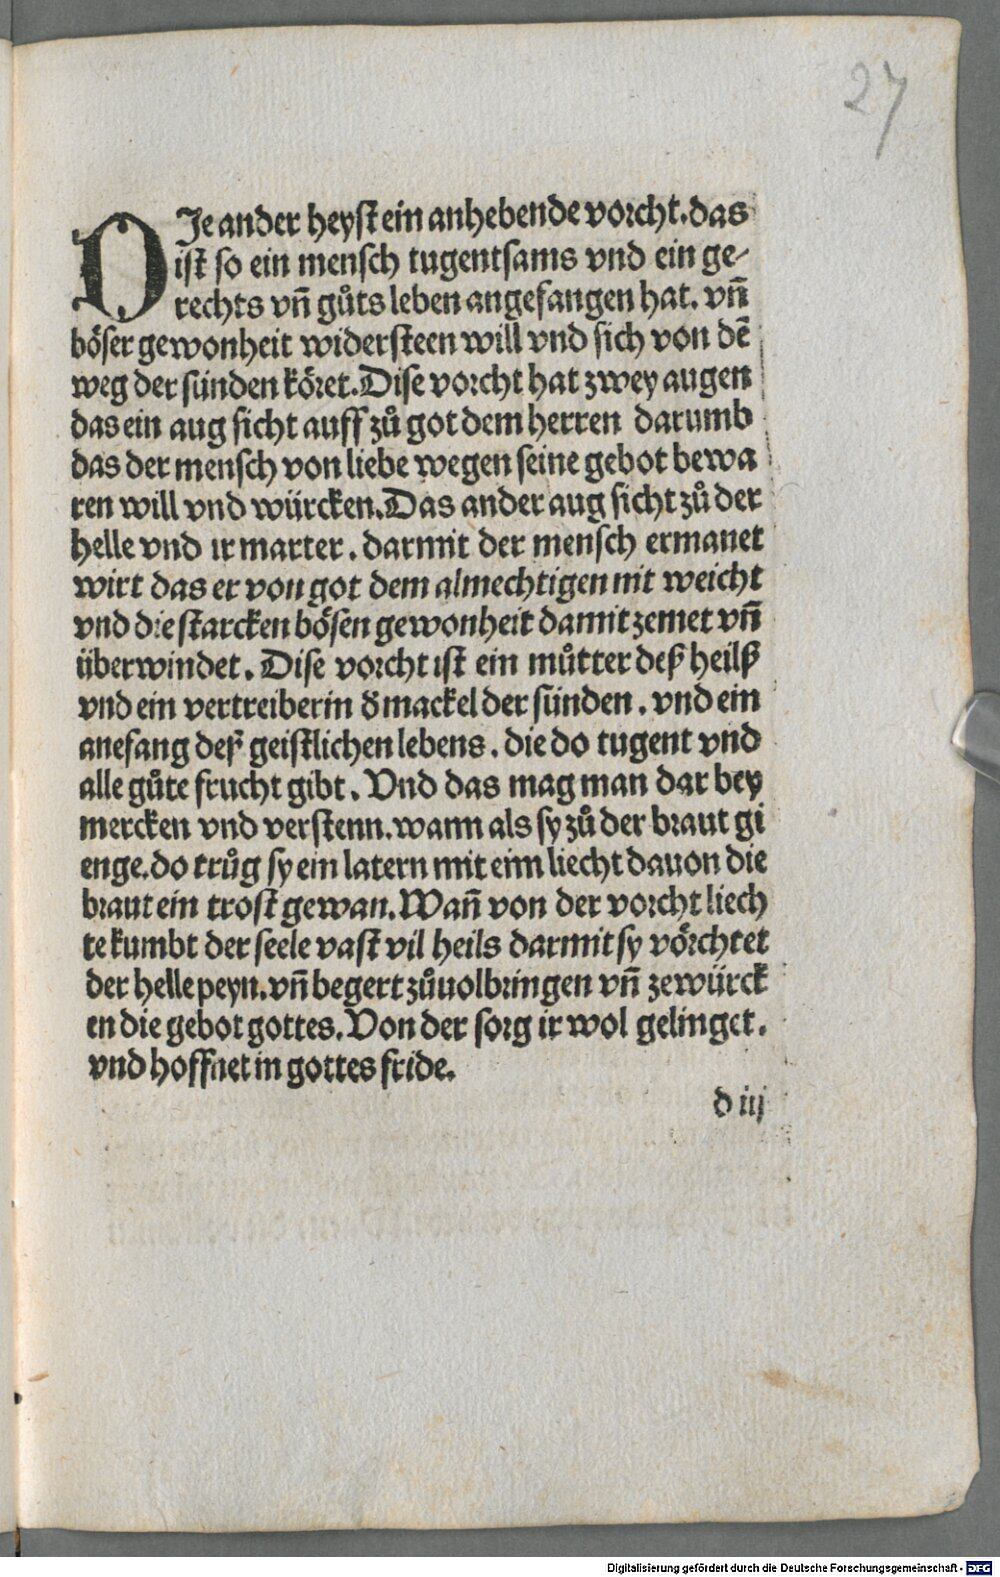 27
DJe ander heyst ein anhebende vorcht. das
ist so ein mensch tugentsams vnd ein ge-
rechts vñ gůts leben angefangen hat. vñ
böser gewonheit widersteen will vnd sich von dē
weg der sünden köret. Dise vorcht hat zwey augen
das ein aug sicht auff zů got dem herren darumb
das der mensch von liebe wegen seine gebot bewa
ren will vnd würcken. Das ander aug sicht zů der
helle vnd ir marter. darmit der mensch ermanet
wirt das er von got dem almechtigen nit weicht
vnd die starcken bösen gewonheit damit zemet vñ
überwindet. Dise vorcht ist ein můtter deß heilß
vnd ein vertreiberin ð mackel der sünden. vnd ein
anefang deß geistlichen lebens. die do tugent vnd
alle gůte frucht gibt. Vnd das mag man dar bey
mercken vnd verstenn. wann als sy zů der braut gi
enge. do trůg sy ein latern mit eim liecht dauon die
braut ein trost gewan. Wañ von der vorcht liech
te kumbt der seele vast vil heils darmit sy vörchtet
der helle peyn. vñ begert zůuolbringen vñ zewürck
en die gebot gottes. Von der sorg ir wol gelinget.
vnd hoffnet in gottes fride.
d iij
Digitalisierung gefördert durch die Deutsche Forschungsgemeinschaft - DFG